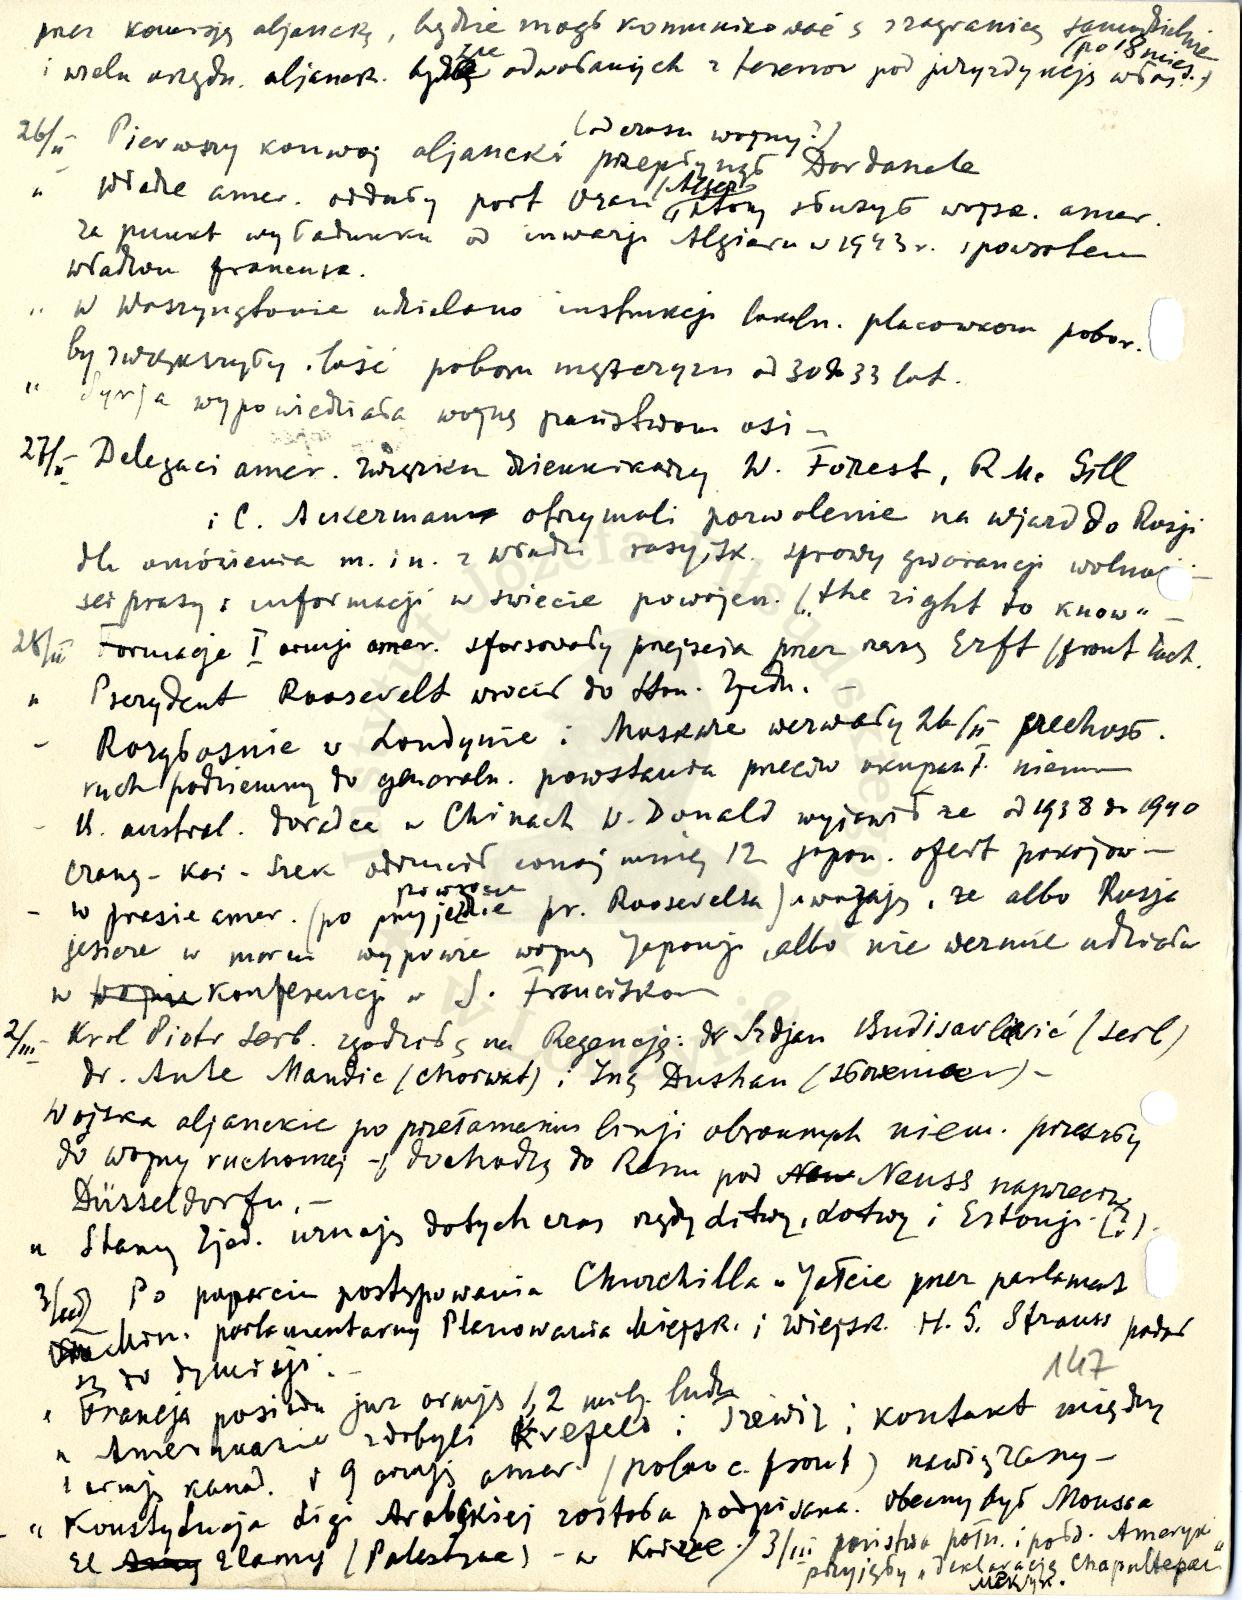 przez komisję aljancką, będzie mogł komunikować z zagranicą samodzielnie
(po 18 mies.)
i wielu urzędn. aljanck. będzie odwołanych z terenow pod juryzdykcją włos.
26/II Pierwszy konwoj aljancki (od czasu wojny?) przepłynął Dardanele
" Władze amer. oddały port Oran (Algier) ktory służył wojsk. amer.
za punkt wyładunku od inwazji Algieru w 1943 r. spowrotem
władzom francusk.
" W Waszyngtonie udzielono instrukcji lokaln. placowkom pobor.
by zwiększyły ilość poboru mężczyzn od 30 do 33 lat.
" Syrja wypowiedziała wojnę państwom osi –
27/II Delegaci amer. związku dziennikarzy W. Forest, R. Mc Gill
i C. Ackerman otrzymali pozwolenie na wjazd do Rosji
dla omówienia m. in. z władz. rosyjsk. sprawy gwarancji wolno-
sci prasy i informacji w swiecie powojen. („the right to know" –
28/II Formacje I armji amer. sforsowały przejscia przez rzekę Erft (front zach.
" Prezydent Roosevelt wrocił do Stan. Zjedn. –
– Rozgłosnie w Londynie i Moskwie wezwały 26/II czechosł.
ruch podziemny do generaln. powstania przeciw okupant. niem
– B. austral. doradca w Chinach W. Donald wyjawił ze od 1938 do 1940
Czang-Kai-Szek odrzucił conajmniej 12 japon. ofert pokojow –
– w prasie amer. (po powrocie pr. Roosevelta) uważają, ze albo Rosja
jeszcze w marcu wypowie wojnę Japonji, albo nie wezmie udziału
w Konferencji w S. Francisko
2/III Krol Piotr serb. zgodził się na Regencję: dr Srdjan Budisavlević (serb)
dr. Ante Mandic (chorwat) i Inż Dushan (słoweniec) –
Wojska aljanckie po przełamaniu linji obronnych niem. przeszły
do wojny ruchomej – i dochodzą do Renu pod Neuss naprzeciw
Düsseldorfu. –
" Stany Zjed. uznają dotychczas rządy Litwy, Łotwy i Estonji. (?).
3/III Po poparciu postępowania Churchilla w Jałcie przez parlament
parlamentarny Planowania Miejsk. i Wiejsk. H. G. Strauss podał
się do dymisji. –
147
" Francja posiada juz armję 1,2 milj. ludzi
" Amerykanie zdobyli Krefeld i Trewir i kontakt między
I armją kanad. i 9 armją amer. (północ. front) nawiązany –
– " Konstytucja Ligi Arabskiej została podpisana. Obecny był Moussa
El Alamy (Palestyna) – w Kairze. / 3/III państwa połn. i połd. Ameryki
przyjęły „deklarację Chapultepec"
Meksyk.